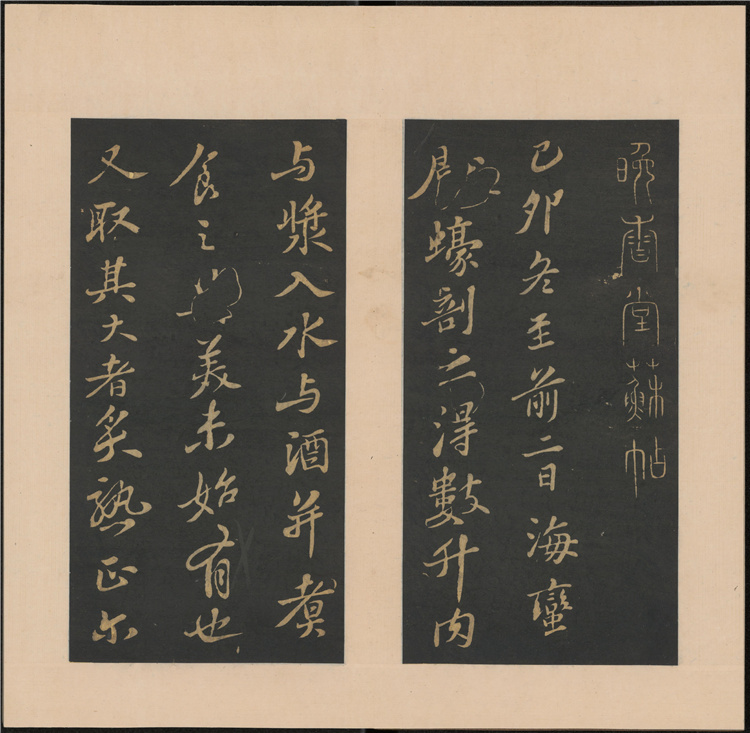 晚香堂蘇帖
己卯冬至前二日海蠻
蠔剖之得數升肉
与漿入水与酒并煮
食之美未始有也
又取其大者炙熟正尔